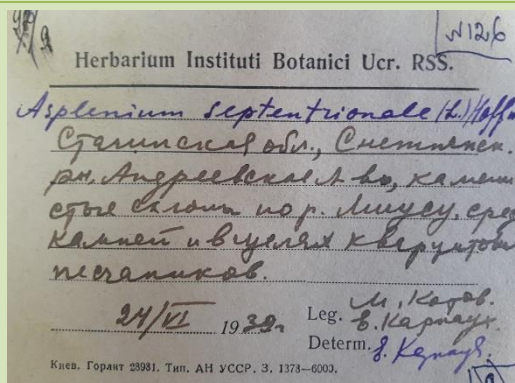 №126
Herbarium Instituti Botanici Ucr. RSS.
Asplenium septentrionale (L.) Hoffm
Сталинская обл., Снежнянск.
рн. Андреевское л-во, камени
стые склоны по р. Миусу, сред
камней и в щелях
песчаников.
24/VI 1939г
Leg. М. Котов.
В. Карнаух.
Determ. В. Карнаух.
Киев. Горлит 23931. Тип. АН УССР. З. 1373—6000.